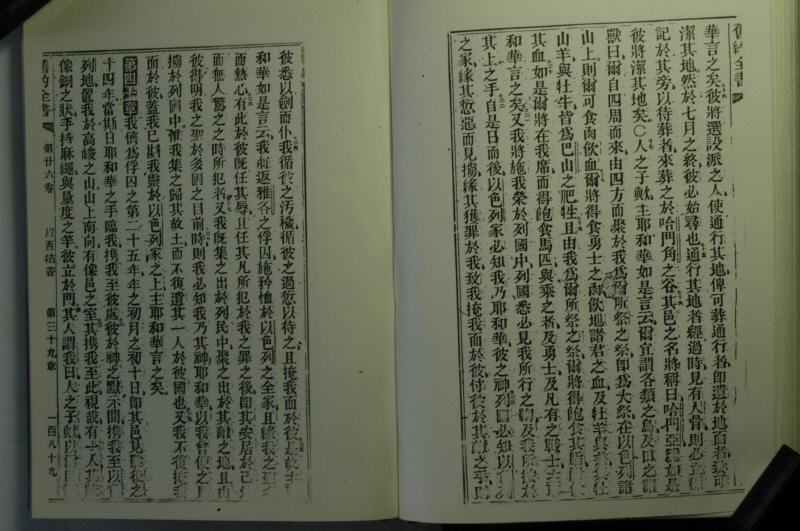 舊約全書
華言之矣彼將選設派之人使通行其地俾可葬通行者卽遺於地面者
潔其地然於七月之終彼必始尋也通行其地者經過時見有人骨則必
記於其旁以待葬者來葬之於哈門角之谷其邑之名將稱曰哈門亞如是
彼將潔其地矣○人之子歟主耶和華如是言云爾宜謂各類之鳥及田之諸
獸曰爾自四周而來由四方而聚於我爲爾所祭之祭卽爲大祭在以色列諸
山上則爾可食肉飮血爾將得食勇士之肉飮地諸君之血及牡羊與
山羊與牡牛皆爲巴山之肥牲且由我爲爾所祭之祭爾將得飽食其脂
其血如是爾將在我席而得飽食馬匹與乘之者及勇士及凡有之戰士
和華言之矣又我將施我榮於列國中列國悉必見我所行之及我所
其上之手自是日而後以色列家必知我乃耶和華彼之神列國必知以
之家緣其愆惡而見擄緣其獲罪於我致我掩我面於彼付彼於其敵之手
彼悉以劍而仆我循彼之汚穢循彼之過愆以待之且掩我面於彼
和華如是言云我將返雅各之俘囚施矜恤於以色列之全家且緣我之聖
而熱心有此於彼旣任其辱且任其凡所犯於我之罪之後卽其安居於己
而無人驚之之時所犯者又我旣集之出於列民中聚之出於其敵之地且由
彼得明我之聖於多國之目前時則我必知我乃其神耶和華以我曾使之
擄於列國中惟我集之歸其故土而不復遺其一人於彼國也又我不復掩我
面於彼蓋我已斟我靈於以色列家之上主耶和華言之矣
第四十章 我儕爲俘囚之第二十五年年之初月之初十日卽其邑見擊後之
十四年當斯日耶和華之手臨我攜我至彼處彼於神之默示間攜我至以
列地置我於高峻之山山上南向有像邑之室其攜我至此視哉有一人
像銅之狀手持麻繩與量度之竿彼立於門其人謂我曰人之子歟以
舊約全書 第廿六卷 以西結書 第三十九章 一百八十九